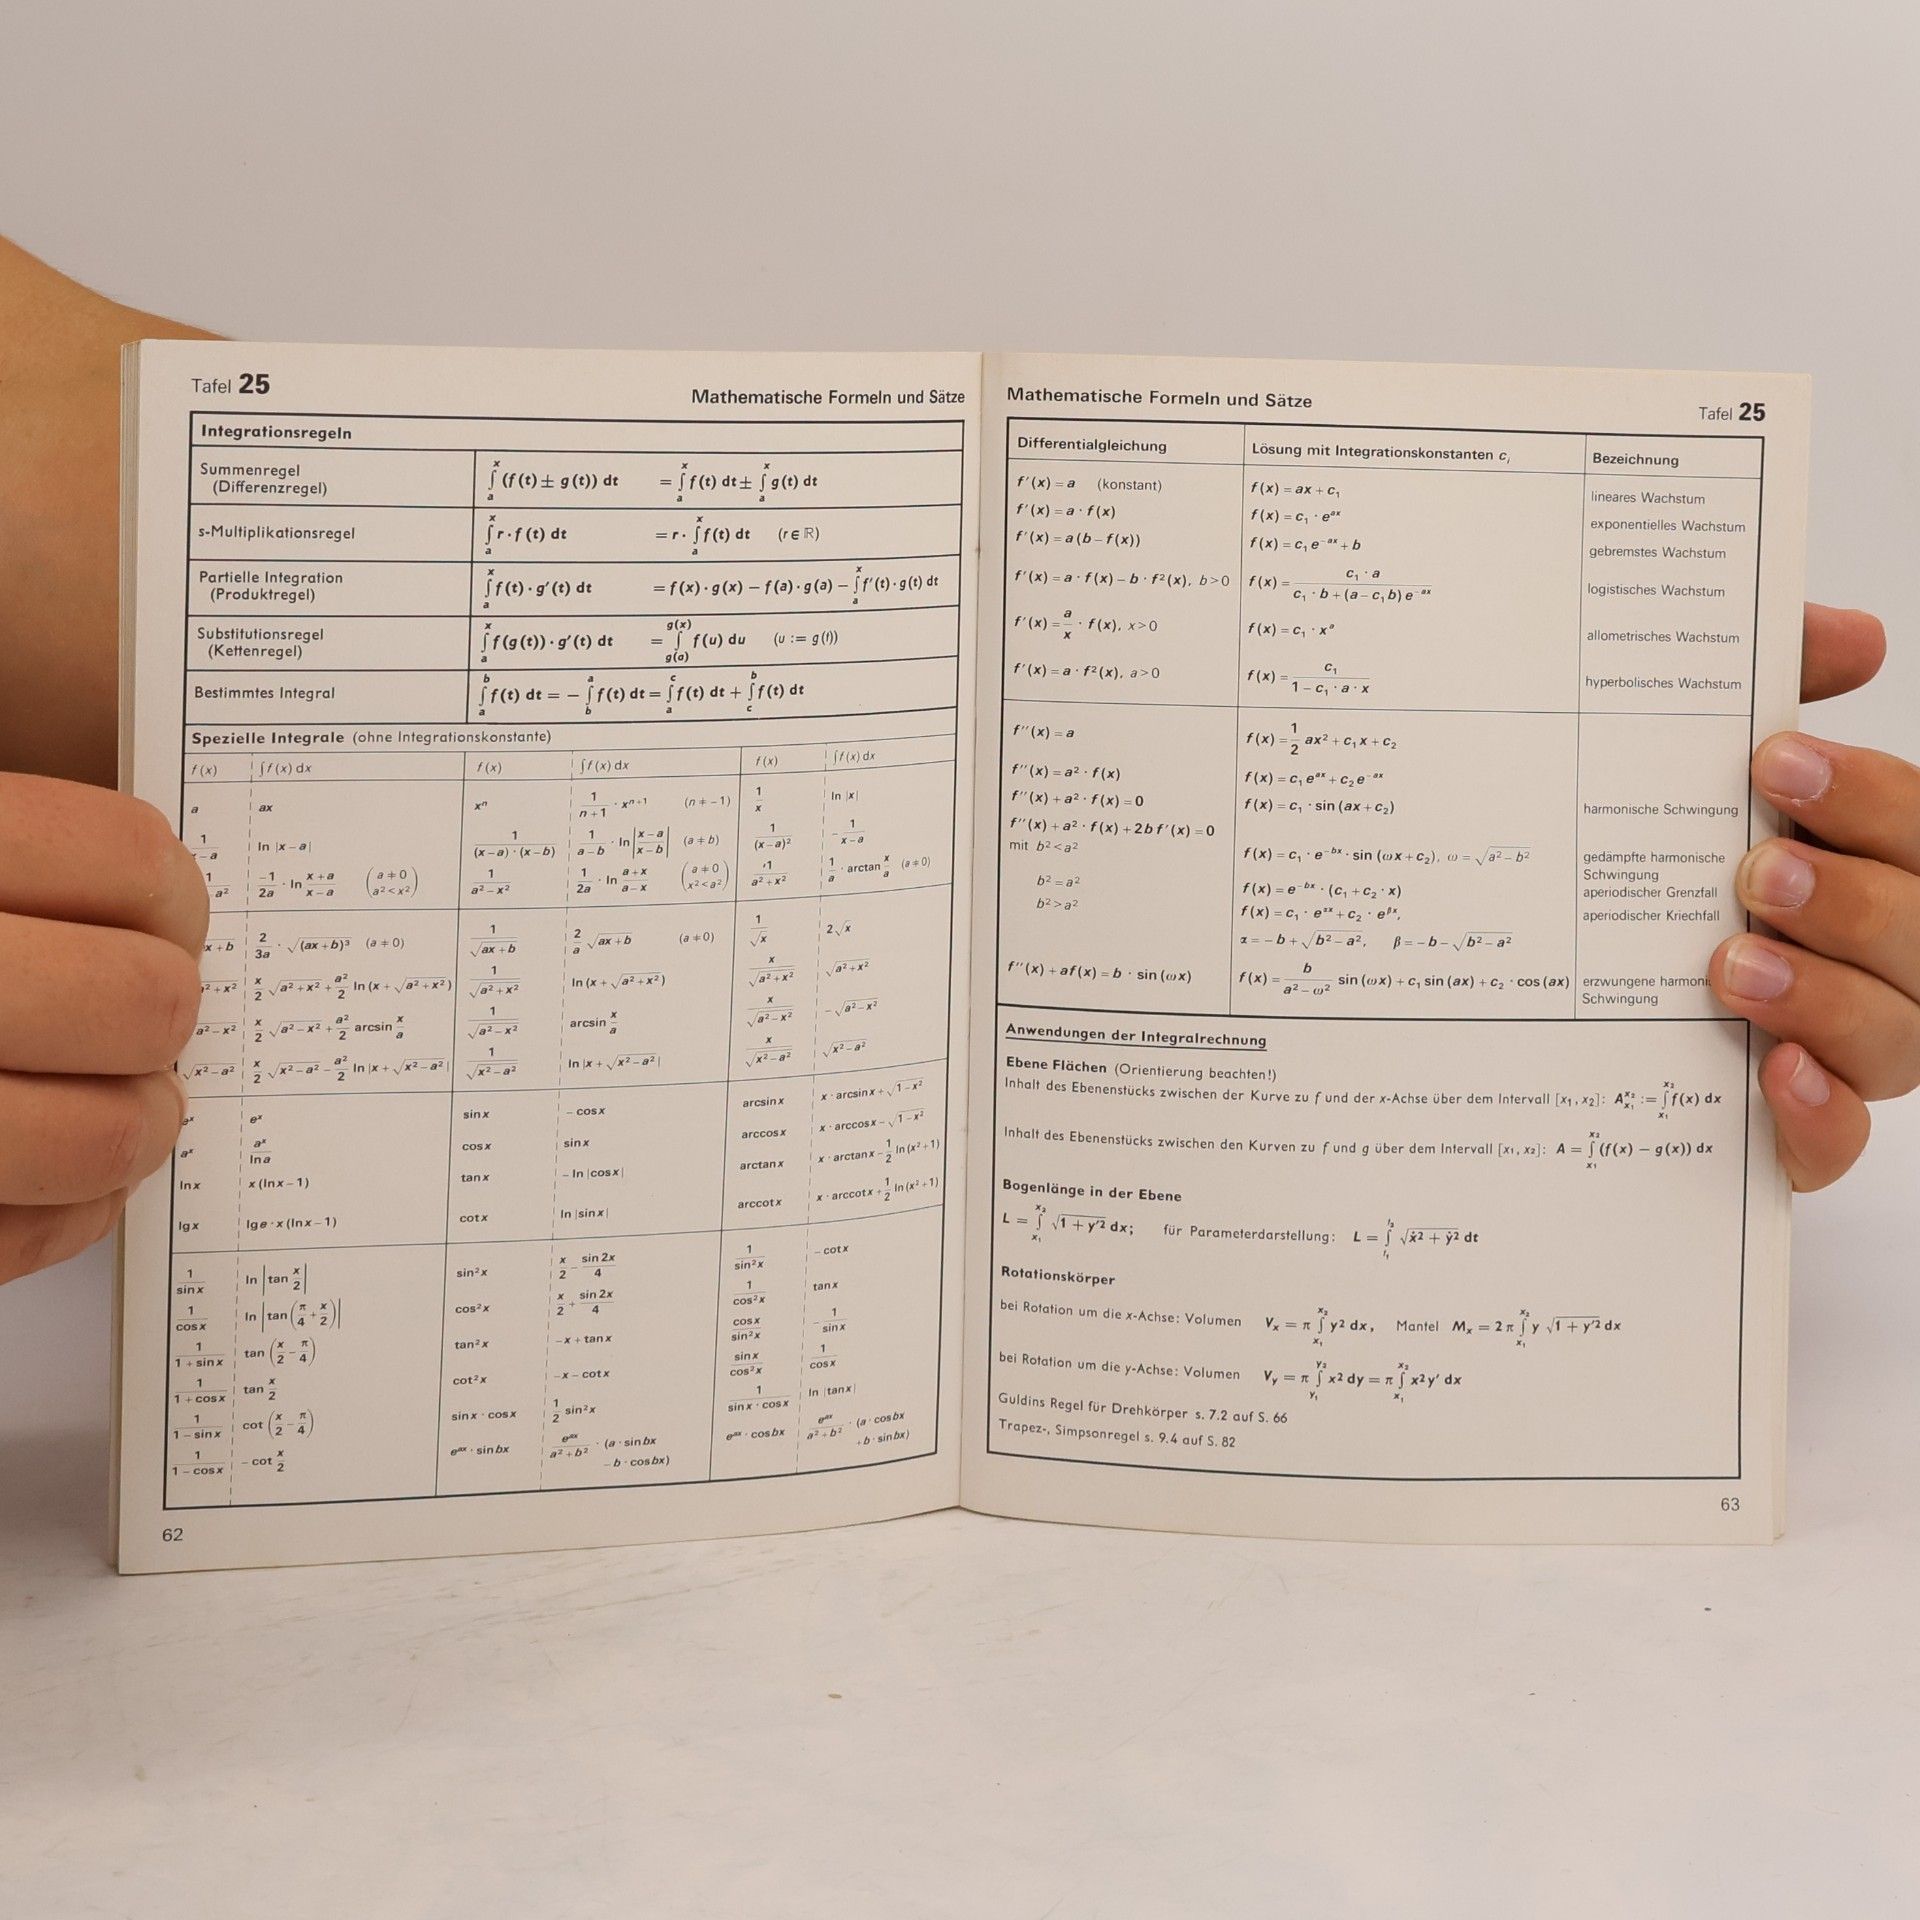 Tafel 25
Mathematische Formeln und Sätze
Integrationsregeln
Summenregel (Differenzregel) ∫ₐˣ (f(t) ± g(t)) dt = ∫ₐˣ f(t) dt ± ∫ₐˣ g(t) dt
s-Multiplikationsregel ∫ₐˣ r · f(t) dt = r · ∫ₐˣ f(t) dt (r ∈ ℝ)
Partielle Integration (Produktregel) ∫ₐˣ f(t) · g′(t) dt = f(x) · g(x) − f(a) · g(a) − ∫ₐˣ f′(t) · g(t) dt
Substitutionsregel (Kettenregel) ∫ₐˣ f(g(t)) · g′(t) dt = ∫_{g(a)}^{g(x)} f(u) du (u := g(t))
Bestimmtes Integral ∫ₐᵇ f(t) dt = − ∫_b^a f(t) dt = ∫_a^c f(t) dt + ∫_c^b f(t) dt
Spezielle Integrale (ohne Integrationskonstante)
f(x) ∫f(x) dx f(x) ∫f(x) dx f(x) ∫f(x) dx
a ax xⁿ 1/(n+1) · xⁿ⁺¹ (n ≠ −1) 1/x ln |x|
ln |x−a| 1/((x−a)·(x−b)) 1/(a−b) · ln |(x−a)/(x−b)| (a ≠ b) 1/(x−a)² −1/(x−a)
−1/2a · ln (x+a)/(x−a) (a ≠ 0, a² < x²) 1/(a²−x²) 1/2a · ln (a+x)/(a−x) (a ≠ 0, x² < a²) 1/(a²+x²) 1/a · arctan x/a (a ≠ 0)
2/3a · √(ax+b)³ (a ≠ 0) 1/√(ax+b) 2/a √(ax+b) (a ≠ 0) 1/√x 2√x
x/2 √(a²+x²) + a²/2 ln (x + √(a²+x²)) 1/√(a²+x²) ln (x + √(a²+x²)) x/√(a²+x²) √(a²+x²)
√(a²−x²) x/2 √(a²−x²) + a²/2 arcsin x/a 1/√(a²−x²) arcsin x/a x/√(a²−x²) −√(a²−x²)
√(x²−a²) x/2 √(x²−a²) − a²/2 ln |x + √(x²−a²)| 1/√(x²−a²) ln |x + √(x²−a²)| x/√(x²−a²) √(x²−a²)
eˣ sin x − cos x arcsin x x · arcsin x + √(1−x²)
aˣ aˣ/ln a cos x sin x arccos x x · arccos x − √(1−x²)
ln x x (ln x − 1) tan x − ln |cos x| arctan x x · arctan x − 1/2 ln (x²+1)
lg x lg e · x (ln x − 1) cot x ln |sin x| arccot x x · arccot x + 1/2 ln (x²+1)
1/sin x ln |tan x/2| sin² x x/2 − sin 2x/4 1/sin² x − cot x
1/cos x ln |tan (π/4 + x/2)| cos² x x/2 + sin 2x/4 1/cos² x tan x
1/(1 + sin x) tan (x/2 − π/4) tan² x −x + tan x cos x/sin² x −1/sin x
1/(1 + cos x) tan x/2 cot² x −x − cot x sin x/cos² x 1/cos x
1/(1 − sin x) cot (x/2 − π/4) sin x · cos x 1/2 sin² x 1/(sin x · cos x) ln |tan x|
1/(1 − cos x) − cot x/2 eᵃˣ · sin bx eᵃˣ/(a²+b²) · (a · sin bx − b · cos bx) eᵃˣ · cos bx eᵃˣ/(a²+b²) · (a · cos bx + b · sin bx)
62
Mathematische Formeln und Sätze
Tafel 25
Differentialgleichung Lösung mit Integrationskonstanten cᵢ Bezeichnung
f′(x) = a (konstant) f(x) = ax + c₁ lineares Wachstum
f′(x) = a · f(x) f(x) = c₁ · eᵃˣ exponentielles Wachstum
f′(x) = a (b − f(x)) f(x) = c₁ e⁻ᵃˣ + b gebremstes Wachstum
f′(x) = a · f(x) − b · f²(x), b > 0 f(x) = c₁ · a/(c₁ · b + (a − c₁ b) e⁻ᵃˣ) logistisches Wachstum
f′(x) = a/x · f(x), x > 0 f(x) = c₁ · xᵃ allometrisches Wachstum
f′(x) = a · f²(x), a > 0 f(x) = c₁/(1 − c₁ · a · x) hyperbolisches Wachstum
f″(x) = a f(x) = 1/2 ax² + c₁ x + c₂
f″(x) = a² · f(x) f(x) = c₁ eᵃˣ + c₂ e⁻ᵃˣ
f″(x) + a² · f(x) = 0 f(x) = c₁ · sin (ax + c₂) harmonische Schwingung
f″(x) + a² · f(x) + 2b f′(x) = 0
mit b² < a² f(x) = c₁ · e⁻ᵇˣ · sin (ωx + c₂), ω = √(a² − b²) gedämpfte harmonische Schwingung
b² = a² f(x) = e⁻ᵇˣ · (c₁ + c₂ · x) aperiodischer Grenzfall
b² > a² f(x) = c₁ · e^{αx} + c₂ · e^{βx}, aperiodischer Kriechfall
α = −b + √(b² − a²), β = −b − √(b² − a²)
f″(x) + af(x) = b · sin (ωx) f(x) = b/(a² − ω²) sin (ωx) + c₁ sin (ax) + c₂ · cos (ax) erzwungene Schwingung
Anwendungen der Integralrechnung
Ebene Flächen (Orientierung beachten!)
Inhalt des Ebenenstücks zwischen der Kurve zu f und der x-Achse über dem Intervall [x₁, x₂]: A_{x₁}^{x₂} := ∫_{x₁}^{x₂} f(x) dx
Inhalt des Ebenenstücks zwischen den Kurven zu f und g über dem Intervall [x₁, x₂]: A = ∫_{x₁}^{x₂} (f(x) − g(x)) dx
Bogenlänge in der Ebene
L = ∫_{x₁}^{x₂} √(1 + y′²) dx; für Parameterdarstellung: L = ∫_{t₁}^{t₂} √(ẋ² + ẏ²) dt
Rotationskörper
bei Rotation um die x-Achse: Volumen Vₓ = π ∫_{x₁}^{x₂} y² dx, Mantel Mₓ = 2π ∫_{x₁}^{x₂} y √(1 + y′²) dx
bei Rotation um die y-Achse: Volumen V_y = π ∫_{y₁}^{y₂} x² dy = π ∫_{x₁}^{x₂} x² y′ dx
Guldins Regel für Drehkörper s. 7.2 auf S. 66
Trapez-, Simpsonregel s. 9.4 auf S. 82
63